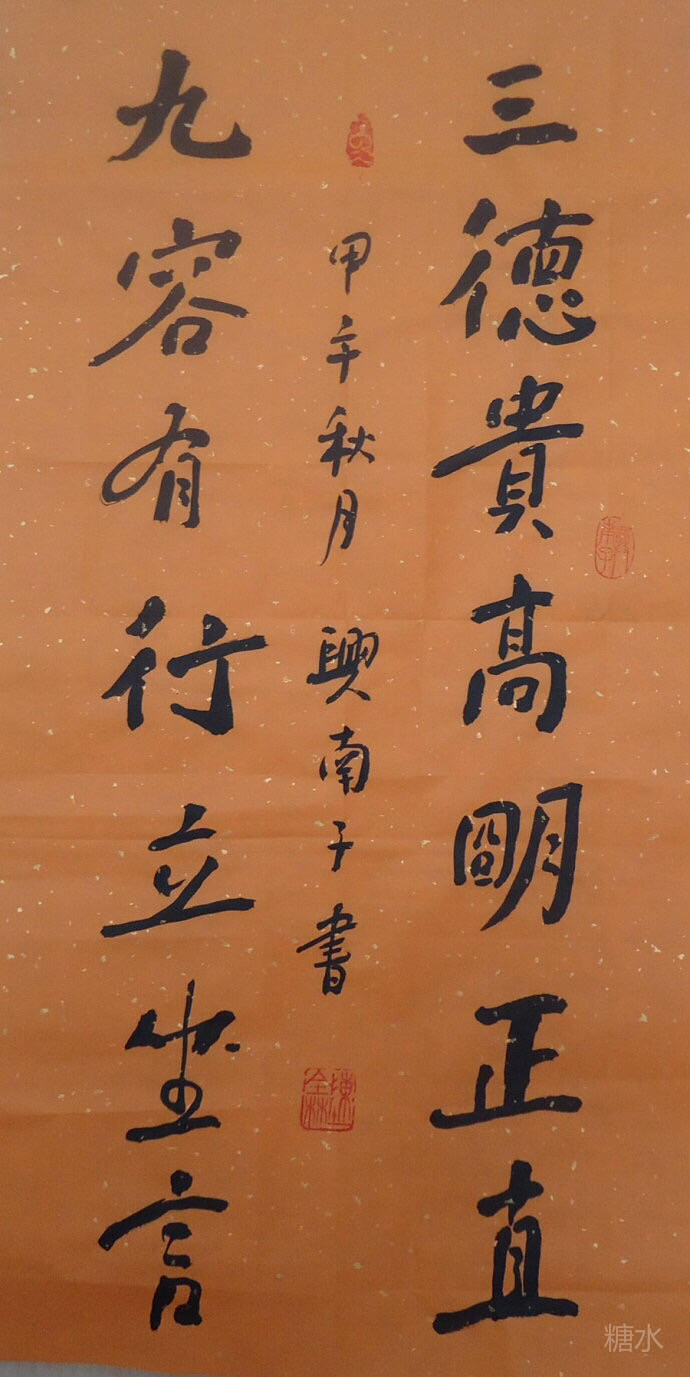 三德貴高明正直
甲午秋月 興南子書
九容有行立坐言
糖水